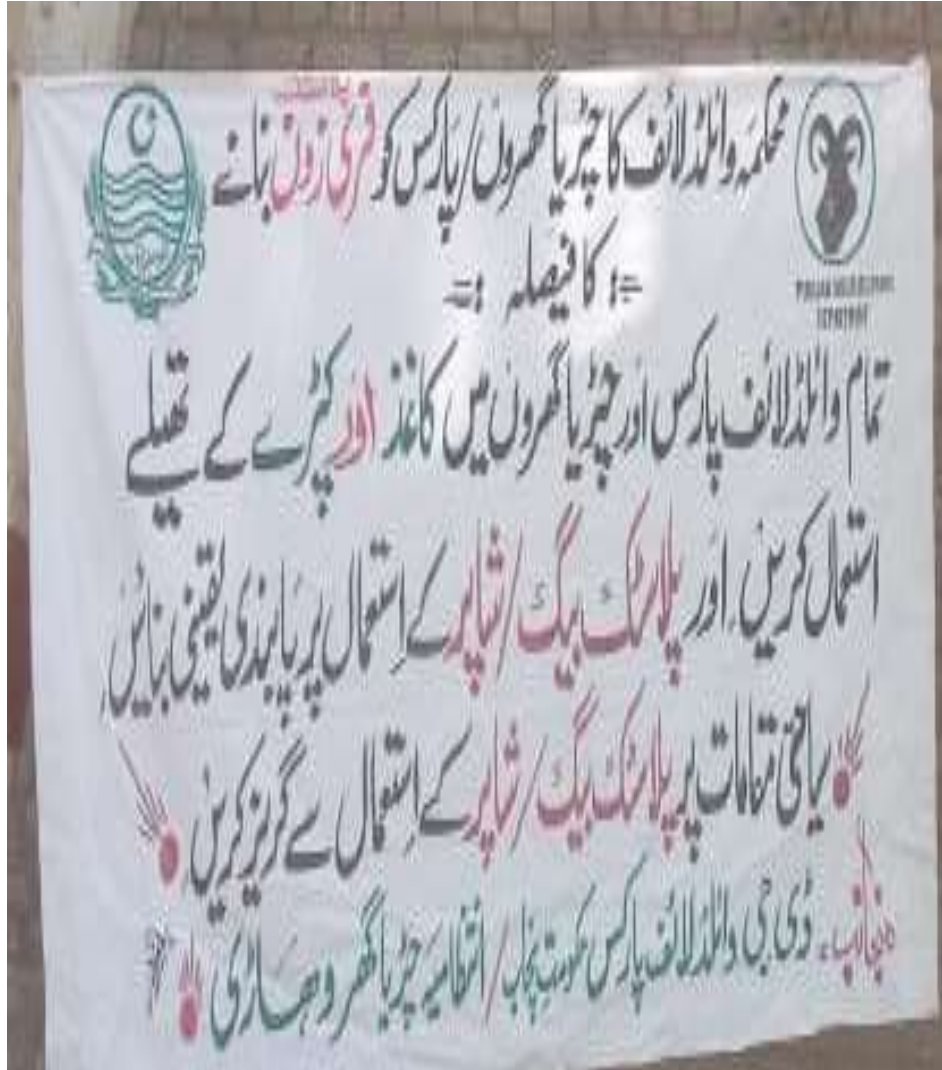 پلاسٹک
محکمہ وائلڈ لائف کا چڑیا گھروں/پارکس کو فری زون بنانے
کا فیصلہ
تمام وائلڈ لائف پارکس اور چڑیا گھروں میں کاغذ اور کپڑے کے تھیلے
استعمال کریں۔ اور پلاسٹک بیگ/شاپر کے استعمال پر پابندی یقینی بنائیں۔
سیاحتی مقامات پر پلاسٹک بیگ/شاپر کے استعمال سے گریز کریں
منجانب: ڈی جی وائلڈ لائف پارکس حکومت پنجاب/انتظامیہ چڑیا گھر وہاڑی